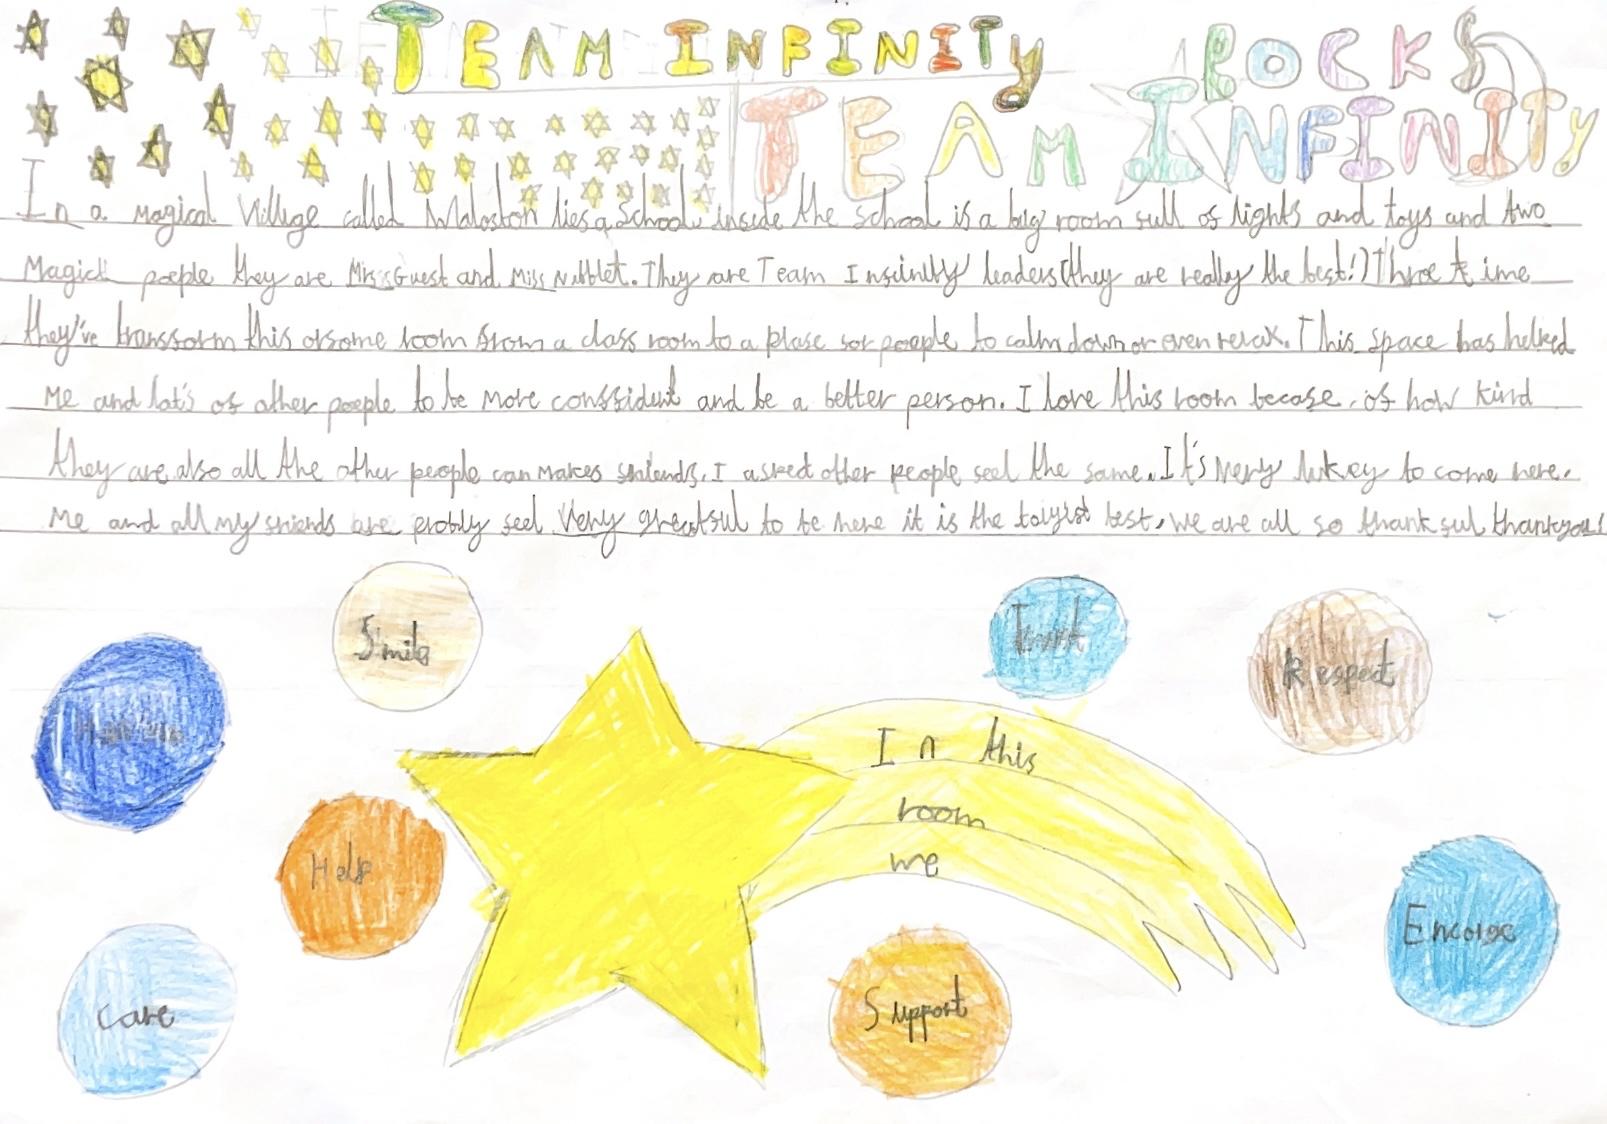 TEAM INFINITY ROCKS
TEAM INFINITY
In a magical village called Maloston lies a School. inside the school is a big room full of lights and toys and two
Magicl poeple they are Mrs Guest and Miss Nibblet. They are Team Infiinity leaders (they are really the best!) Throe time
they've transform this orsome room from a class room to a plase for poople to calm down or even relax. This space has helked
me and lat's of other poeple to be more confsident and be a better person. I love this room becase. of how kind
they are also all the other people can makes friends. I asked other people feel the same. It's very lukey to come here.
me and all my friends are probly feel very greatful to be here it is the best. we are all so thankful thankyou!
Smile
Trust
Respect
In this
room
we
Help
Encorge
Care
Support